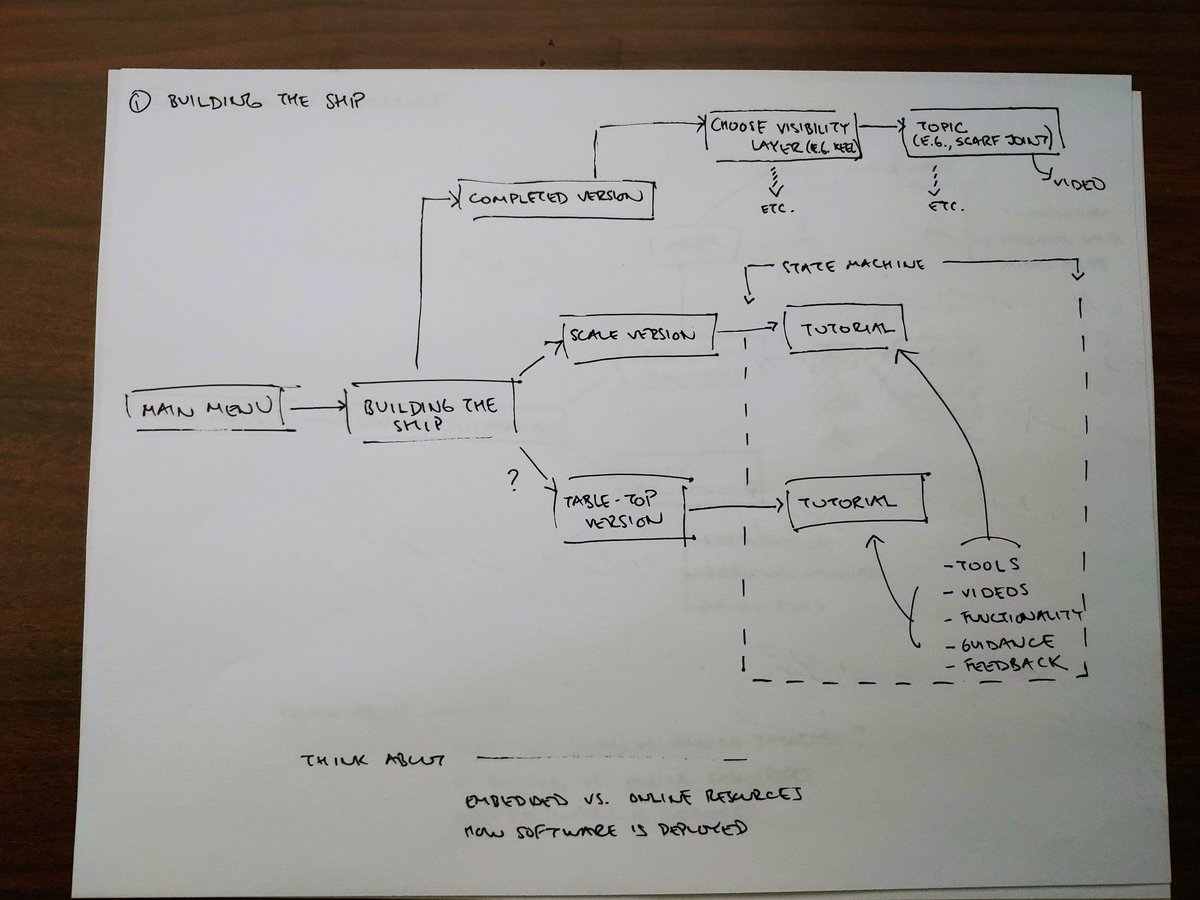 ① BUILDING THE SHIP
CHOOSE VISIBILITY
LAYER (E.G. KEEL)
TOPIC
(E.G., SCARF JOINT)
VIDEO
ETC.
ETC.
COMPLETED VERSION
STATE MACHINE
SCALE VERSION
TUTORIAL
MAIN MENU
BUILDING THE
SHIP
?
TABLE-TOP
VERSION
TUTORIAL
- TOOLS
- VIDEOS
- FUNCTIONALITY
- GUIDANCE
- FEEDBACK
THINK ABOUT
EMBEDDED VS. ONLINE RESOURCES
HOW SOFTWARE IS DEPLOYED